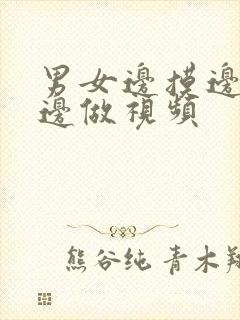 男女邊摸邊
邊做視頻
熊谷纯 青木翔